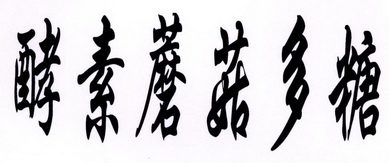 酵素蘑菇多糖